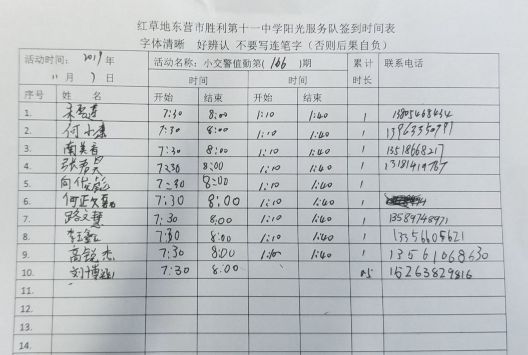 红草地东营市胜利第十一中学阳光服务队签到时间表
字体清晰 好辨认 不要写连笔字（否则后果自负）
活动时间： 2019 年 活动名称：小交警值勤第（166）期 累计时长 联系电话
11 月 7 日 时间 时间
序号 姓 名 开始 结束 开始 结束
1. 7:30 8:00 1:10 1:40 1
2. 7:30 8:00 1:10 1:40 1
3. 南美香 7:30 8:00 1:10 1:40 1 13518668217
4. 7:30 8:00 1:10 1:40 1
5. 7:30 8:00 1:10 1:40 1
6. 7:30 8:00 1:10 1:40 1
7. 路文慧 7:30 8:00 1:10 1:40 1 13589748971
8. 7:30 8:00 1:10 1:40 1 13356605621
9. 高锐杰 7:30 8:00 1:10 1:40 1 13561068630
10. 刘博 7:30 8:00 0.5 15263829816
11.
12.
13.
14.